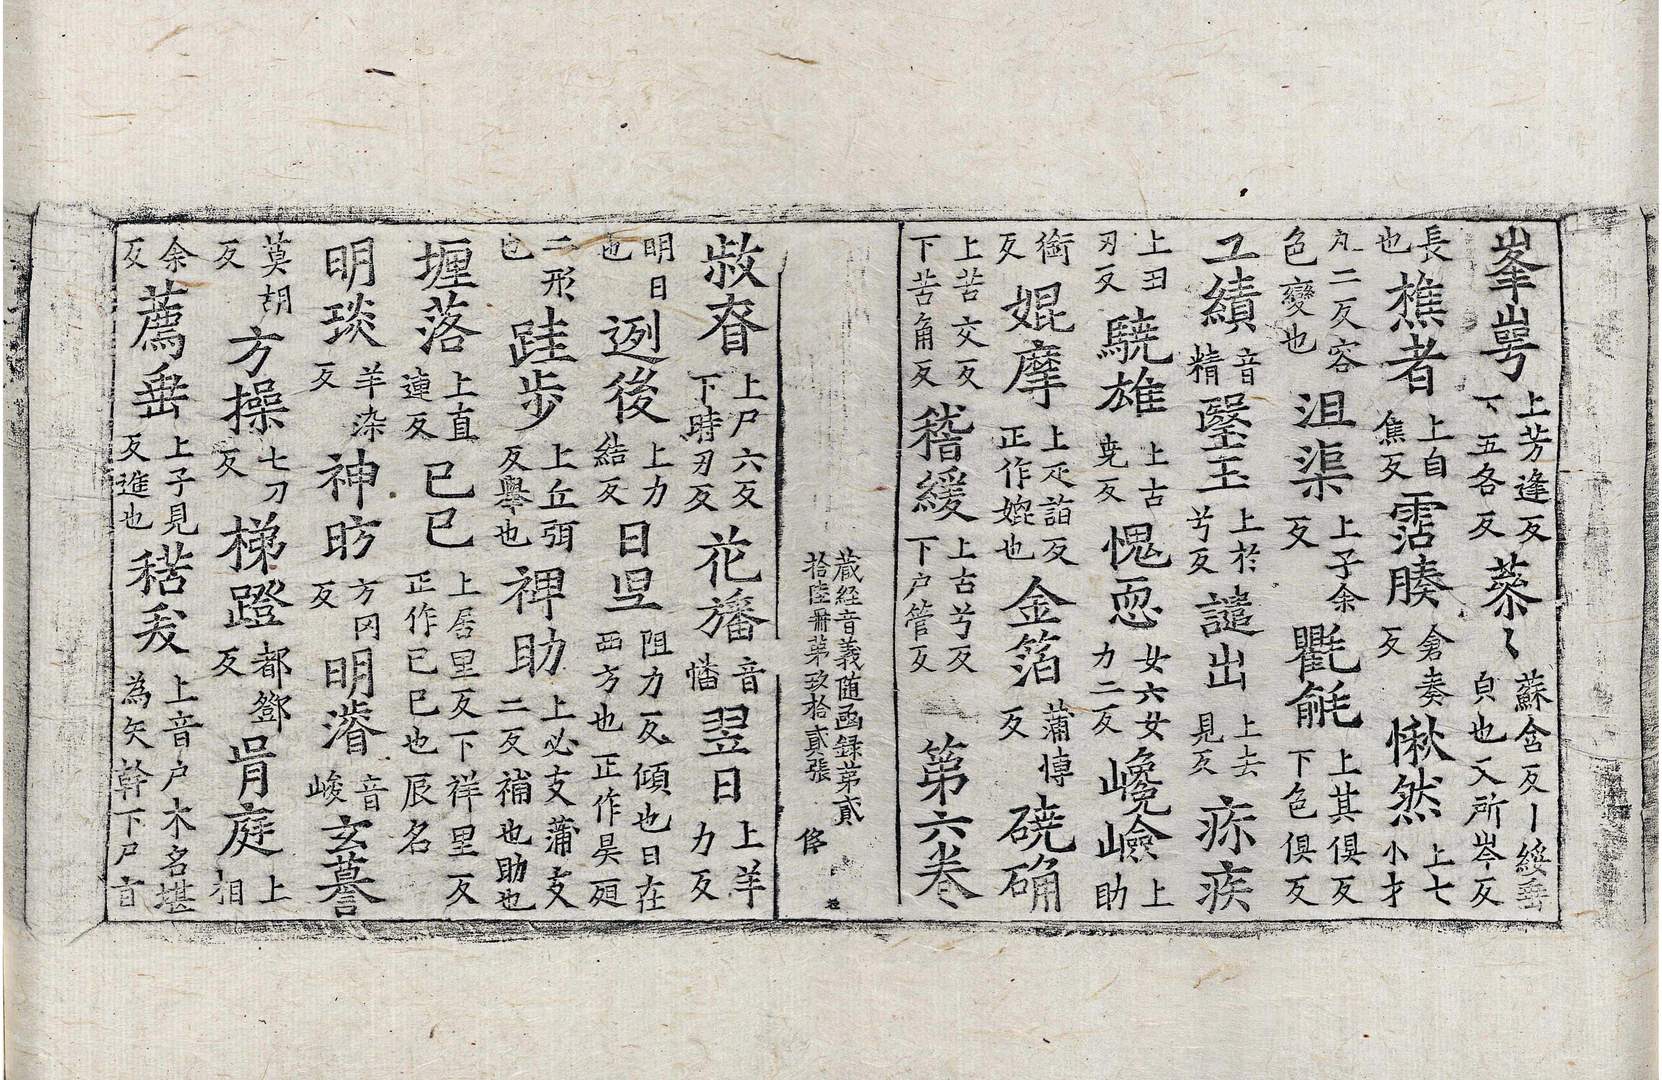 峯崿上芳逢反下五各反蔘〻蘇含反丨綏垂皃也又所岑反
長也樵者上自焦反霑腠倉奏反愀然上七小才
九二反容色變也沮渠上子余反氍毹上其俱反下色俱反
工績音精瑿玉上於兮反譴出上去見反疢疾
上丑刃反驍雄上古堯反愧恧女六女力二反巉嶮上助
銜反媲摩上疋詣反正作媲也金箔蒲博反磽确
上苦交反下苦角反稽緩上古兮反下户管反第六卷
藏経音義随函録第貳拾陸冊第玖拾貳張
㑏
敊眘上尸六反下時刃反花旛音幡翌日上羊力反
明日也迾後上力結反日㫷阻力反傾也日在西方也正作昃㢠
二形也跬步上丘弭反舉也裨助上必支蒲支二反補也助也
堙落上直連反已巳上居里反下祥里反正作已巳也辰名
明琰羊染反神昉方冈反明濬音峻玄謩
莫胡反方操七刀反梯蹬都鄧反肯庭上相
余反薦垂上子見反進也秳㺯上音户木名堪為矢幹下尸盲